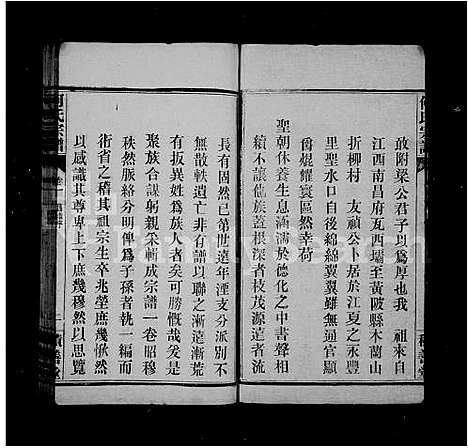 敢附梁公君子以爲厚也我 祖來自
江西南昌府瓦西壩至黄陂縣木蘭山
折柳村 友禎公卜居於江夏之永豐
里聖水口自後綿綿翼翼雖無通官顯
爵焜耀寰區然幸荷
聖朝休養生息涵濡於德化之中書聲相
續不讓他族蓋根深者枝茂源遠者流
長有固然已第世遠年湮支分派別不
無散軼遺亡非有譜以聯之漸遠漸荒
有拔異姓爲族人者矣可勝慨哉爰是
聚族合謀躬親采輯成宗譜一卷昭穆
秩然脈絡分明俾爲子孫者執一編而
術省之稽其祖宗生卒兆塋庶幾愀然
以感識其尊卑上下庶幾穆然以思覽
何氏宗譜
卷一
積善堂